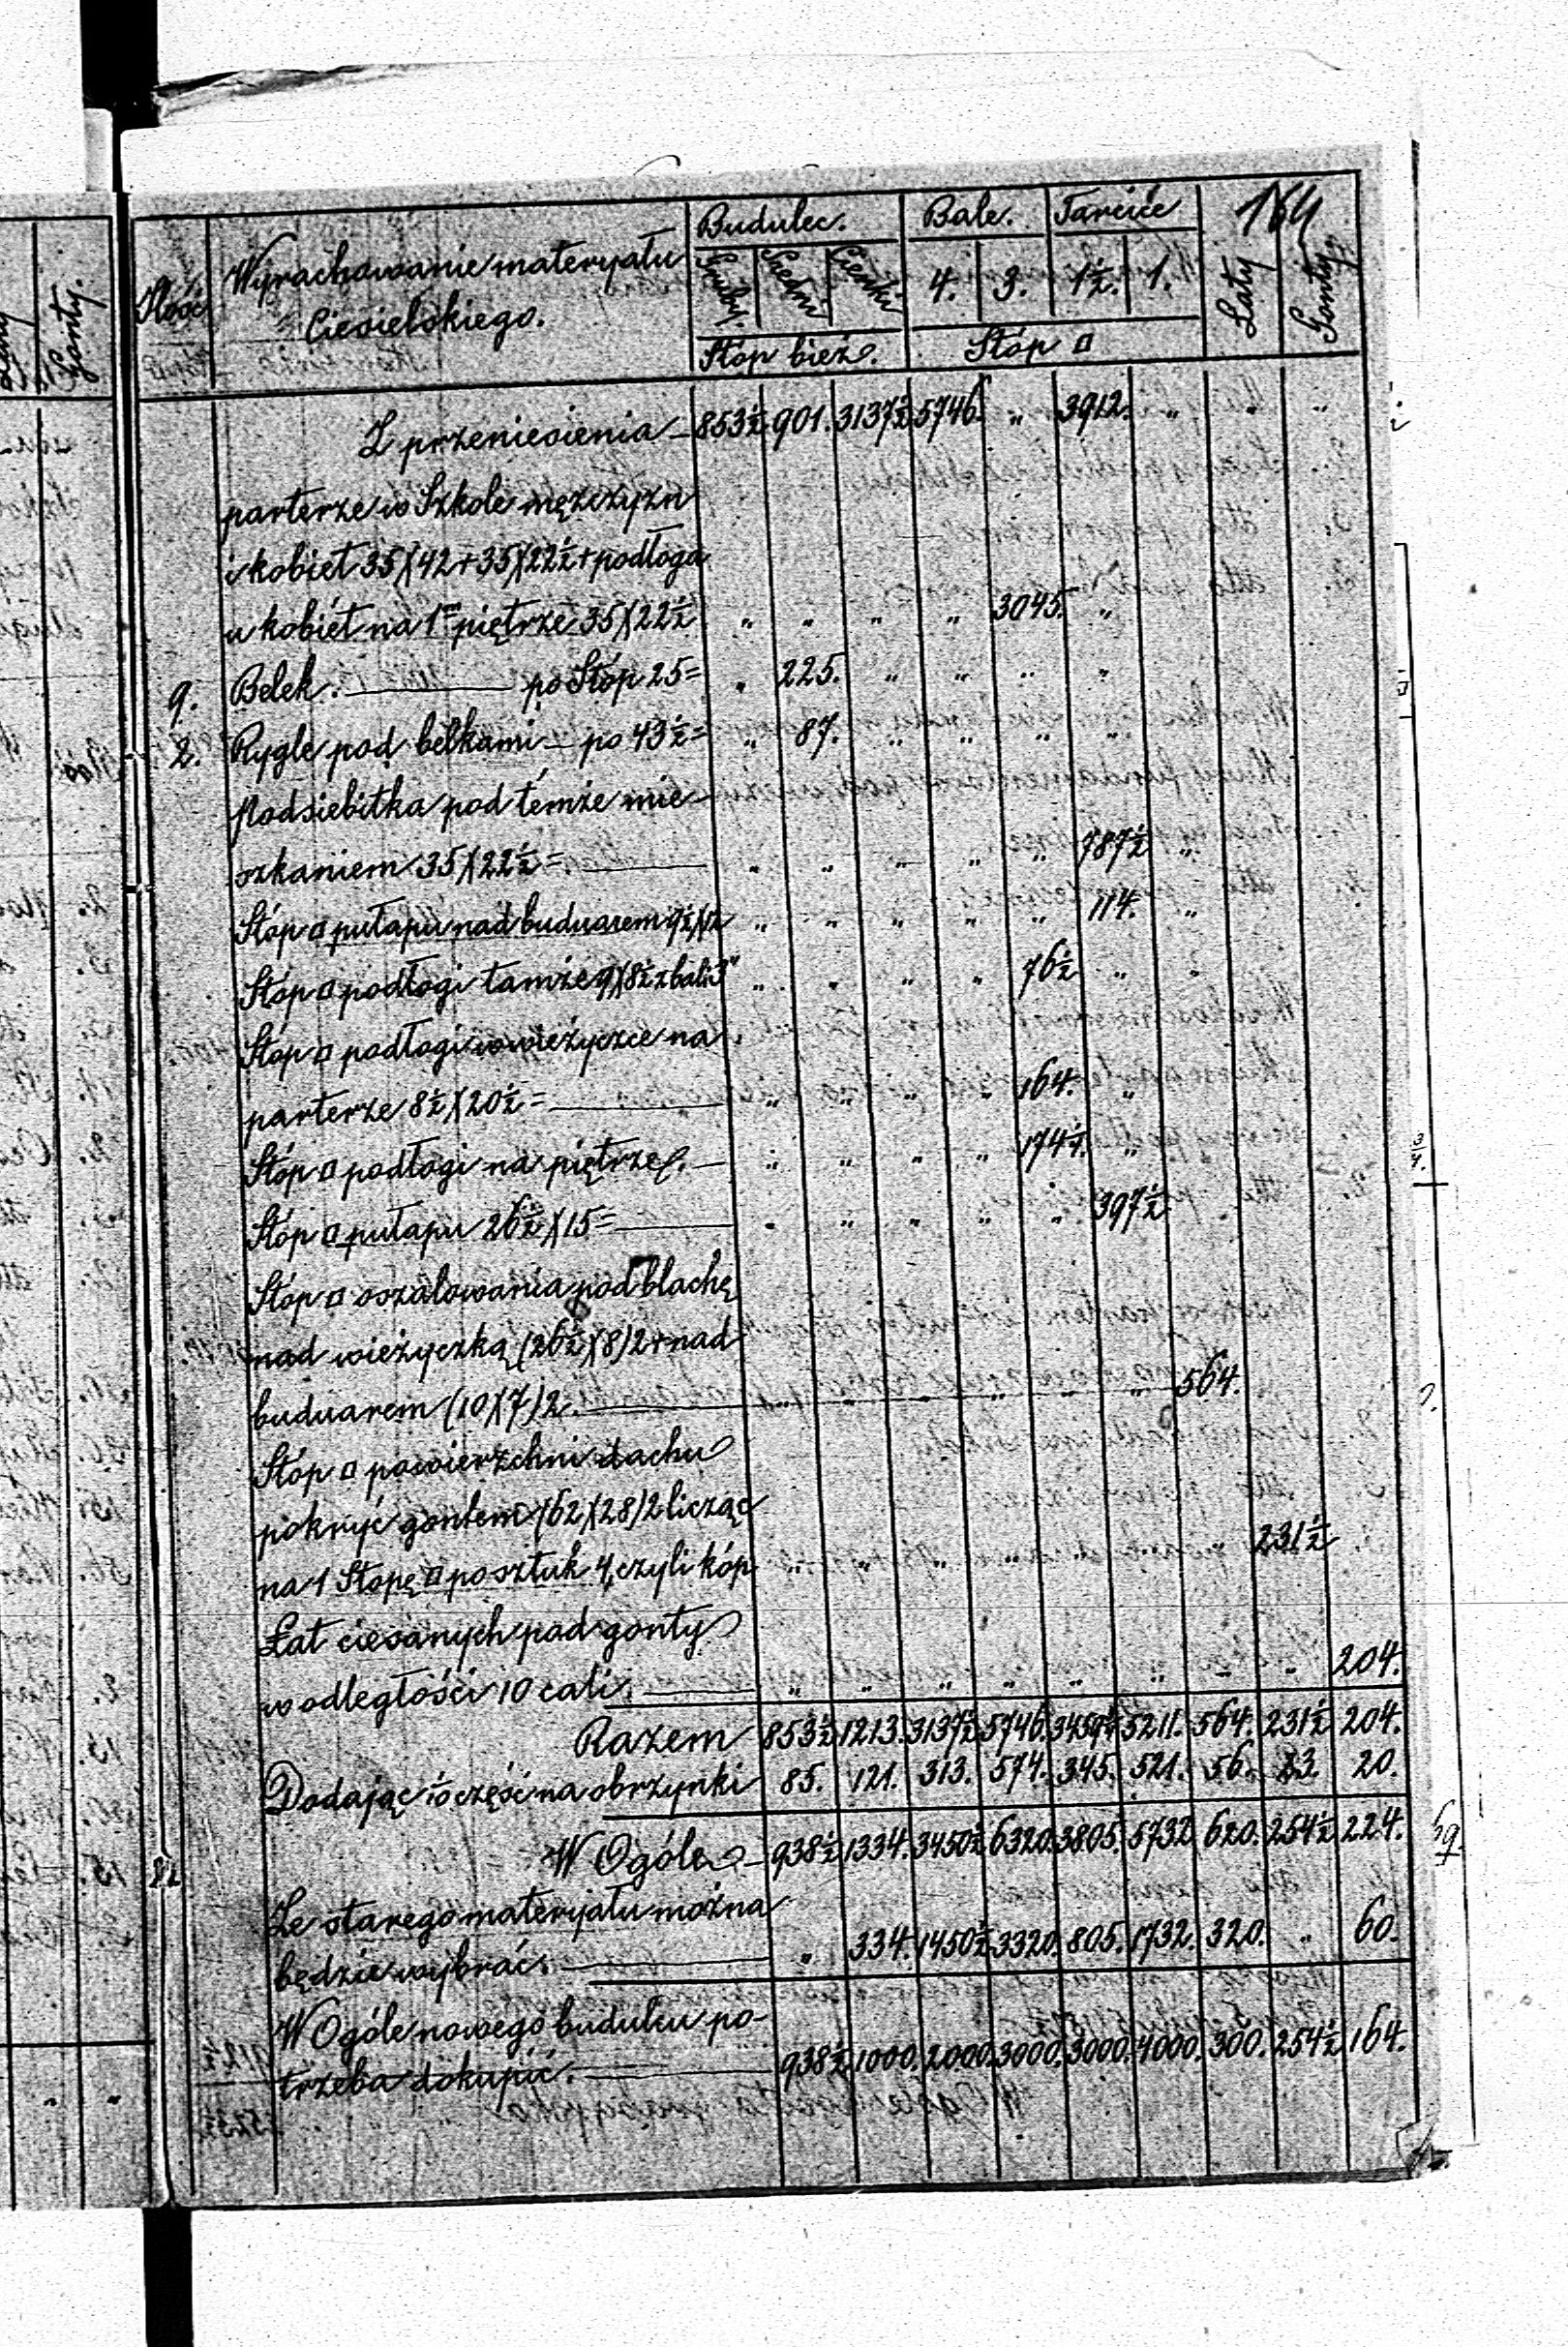 164
Ilość Wyrachowanie materyału Ciesielskiego. Budulec. Bale. Tarcice Łaty Gonty.
Gruby. Średni Cienki 4. 3. 1½. 1.
Stóp bież. Stóp □
Z przeniesienia — 853½ 901. 3137½ 5746. „ 3912. „ „ „
parterze w Szkole mężczyzn
i kobiet 35)(42+35)(22½+podłoga
u kobiet na 1m piętrze 35)(22½ „ „ „ „ 3045. „
9. Belek. — po Stóp 25= „ 225. „ „ „ „
2. Rygle pod belkami — po 43½= „ 87. „ „ „ „
Podsiebitka pod témże mie-
szkaniem 35)(22½=. — „ „ „ „ „ 787½ „
Stóp □ pułapu nad buduarem 9½)(12 „ „ „ „ „ 114. „
Stóp □ podłogi tamże 9)(8½ z bali 3" „ „ „ „ 76½ „ „
Stóp □ podłogi w wieżyczce na
parterze 8½)(20½= — „ „ „ „ 164. „
Stóp □ podłogi na piętrze. — „ „ „ „ 174¼. „
Stóp □ pułapu 26½)(15= — „ „ „ „ „ 397½
Stóp □ oszalowania pod blachę
nad wieżyczką (26½)(8)2+nad
buduarem (10)(7)2. — „ „ „ „ „ „ 564.
Stóp □ powierzchni dachu
pokryć gontem (62)(28)2 licząc
na 1 Stopę □ po sztuk 4, czyli kóp „ „ „ „ „ „ „ 231½
Łat ciesanych pod gonty
w odległości 10 cali. — „ „ „ „ „ „ „ „ 204.
Razem 853½ 1213. 3137½ 5746. 3459¼ 5211. 564. 231½ 204.
Dodając 1/10 część na obrzynki 85. 121. 313. 574. 345. 521. 56. 23. 20.
W Ogóle — 938½ 1334. 3450½ 6320. 3805. 5732 620. 254½ 224.
Ze starego materyału można
będzie wybrać. — „ 334. 1450½ 3320. 805. 1732. 320. „ 60.
W Ogóle nowego budulcu po-
trzeba dokupić. — 938½ 1000. 2000. 3000. 3000. 4000. 300. 254½ 164.
Gonty.